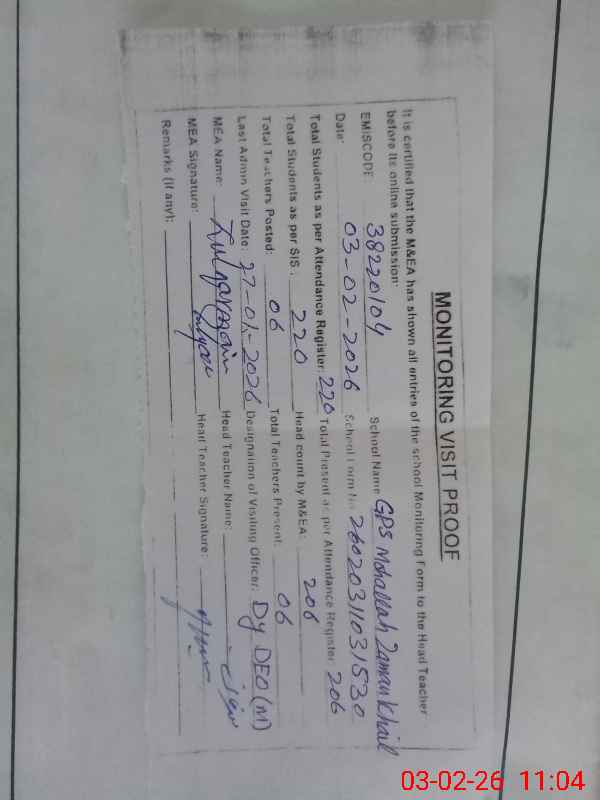 MONITORING VISIT PROOF
It is certified that the M&EA has shown all entries of the school Monitoring Form to the Head Teacher
before its online submission:
EMISCODE 38220104 School Name GPS Mohallah Zaman Khail
Date: 03-02-2026 School Form No 26020311031530
Total Students as per Attendance Register: 220 Total Present as per Attendance Register 206
Total Students as per SIS: 220 Head count by M&EA: 206
Total Teachers Posted: 06 Total Teachers Present: 06
Last Admin Visit Date: 27-01-2026 Designation of Visiting Officer: Dy DEO (M)
MEA Name: Head Teacher Name:
MEA Signature: Head Teacher Signature:
Remarks (if any):
03-02-26 11:04